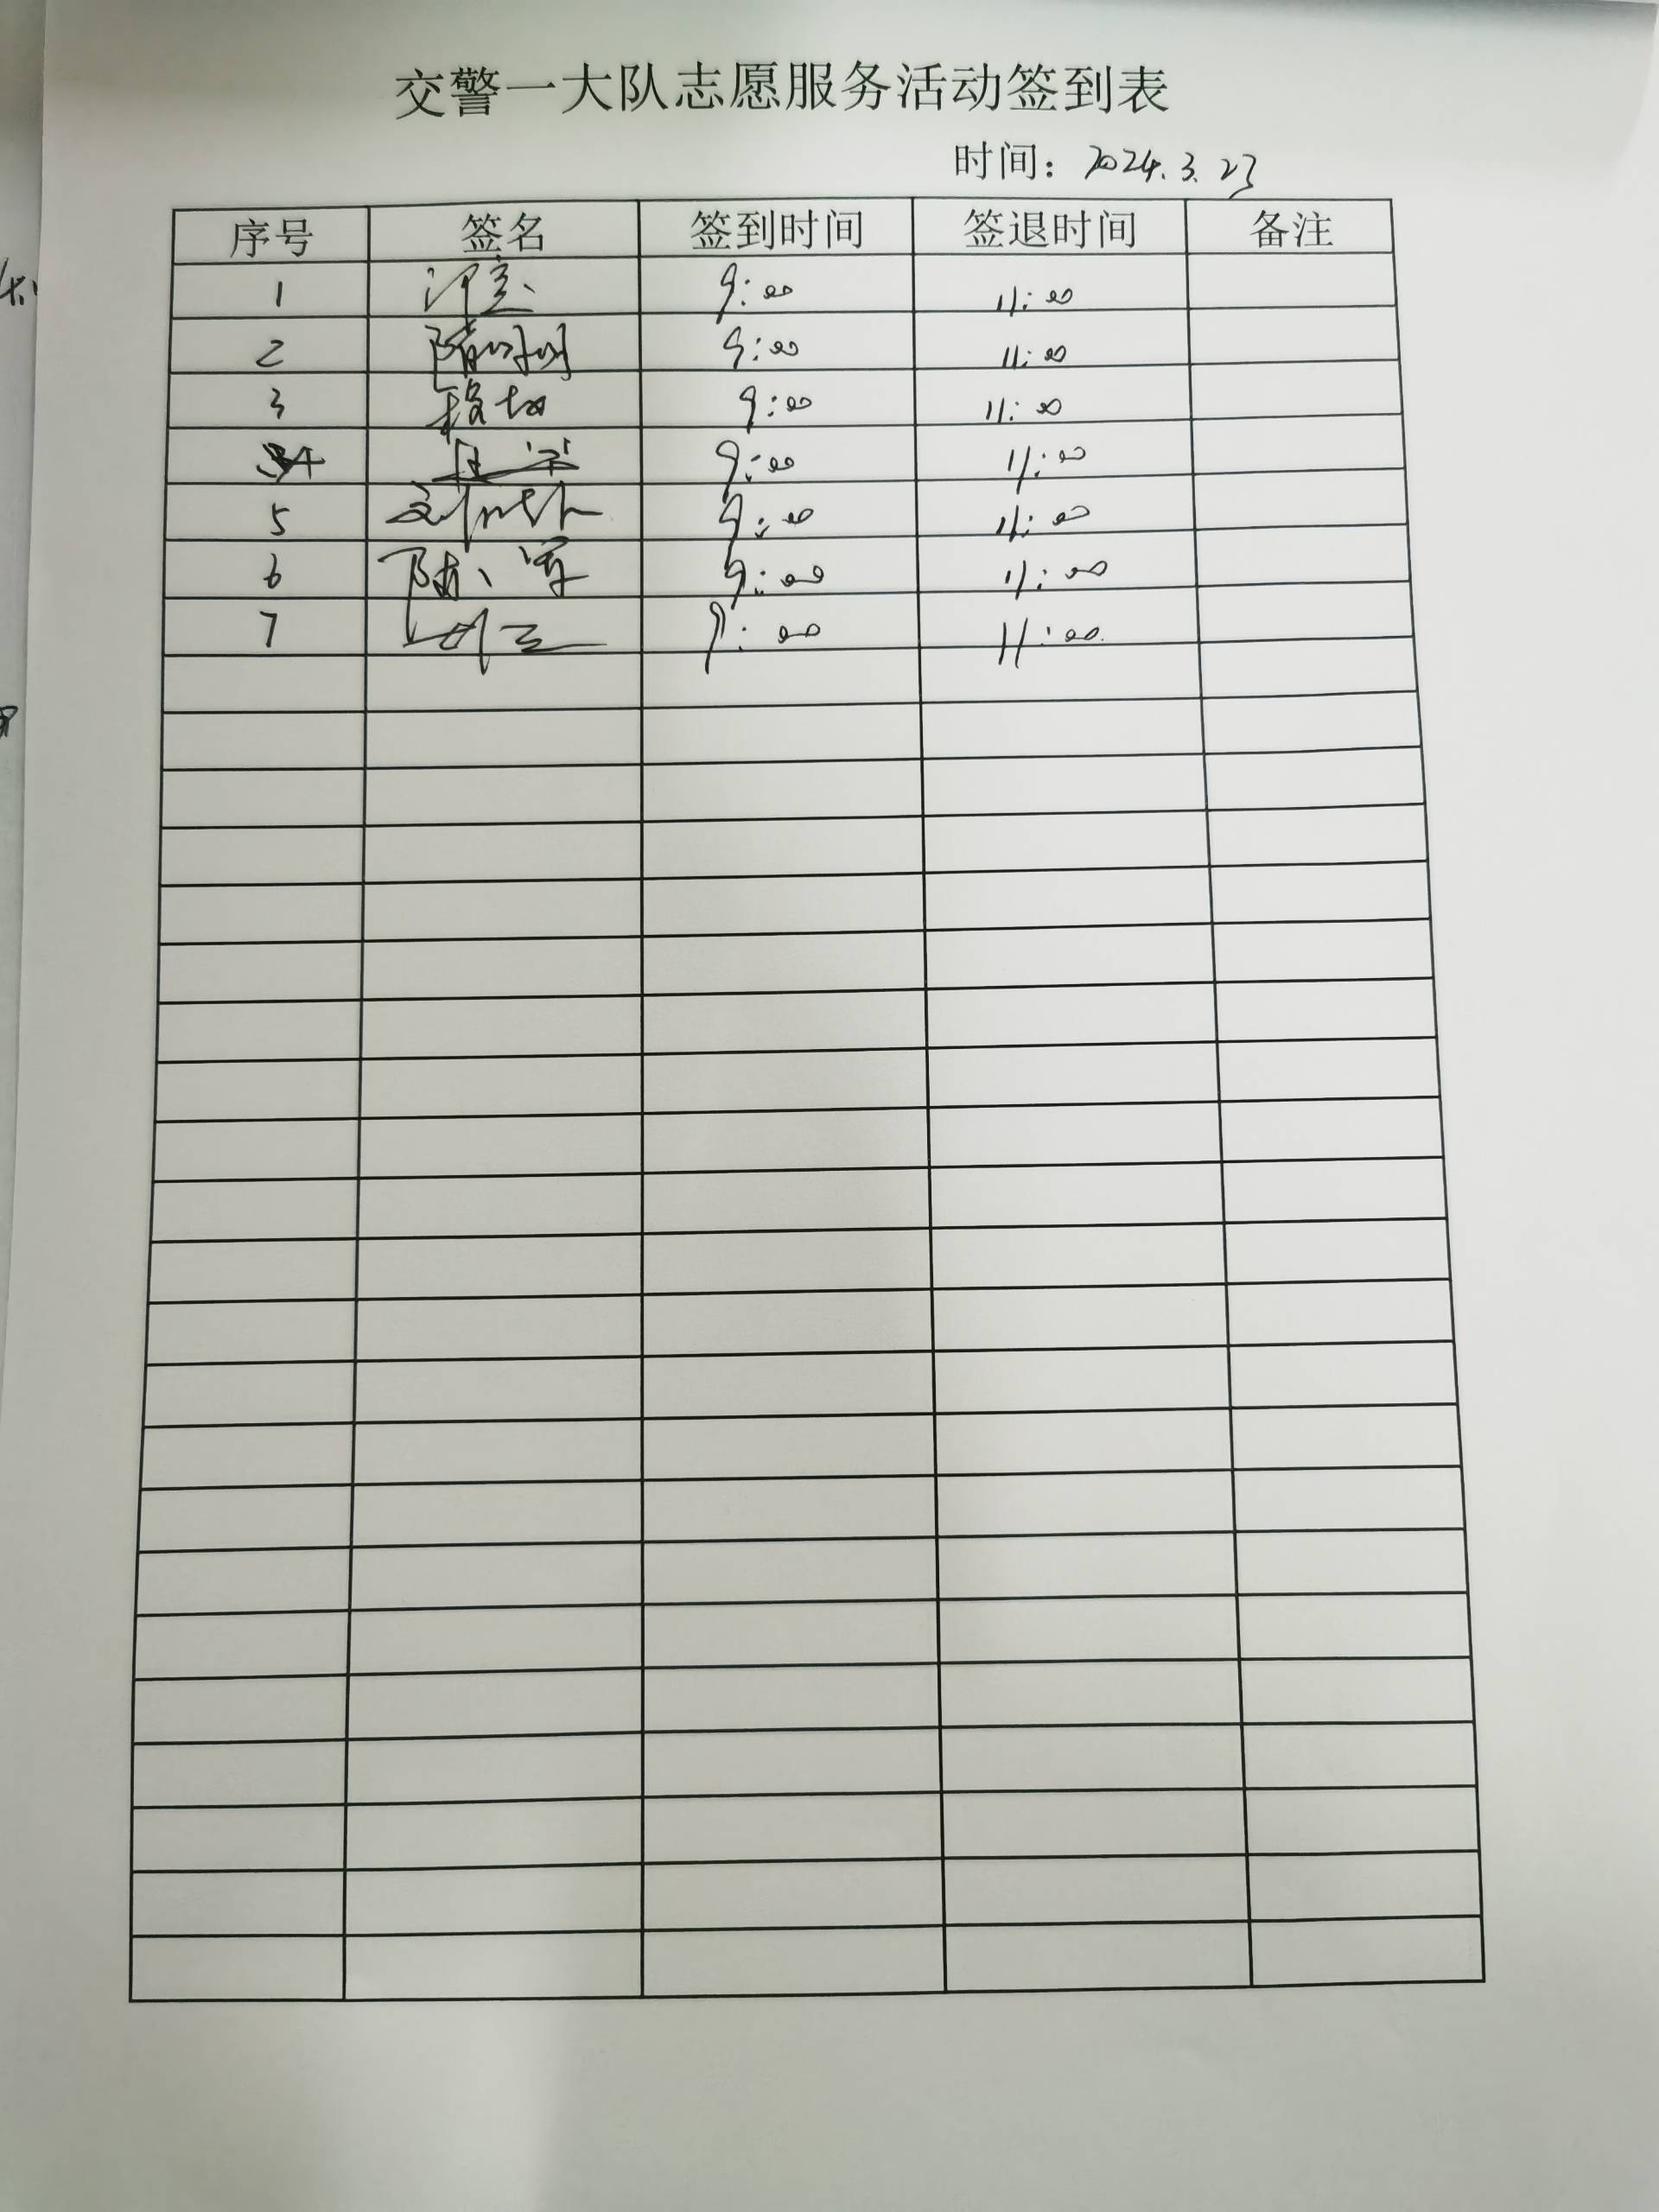 交警一大队志愿服务活动签到表
时间：2024.3.23
序号 签名 签到时间 签退时间 备注
1 9:00 11:00
2 9:00 11:00
3 9:00 11:00
4 9:00 11:00
5 9:00 11:00
6 9:00 11:00
7 9:00 11:00